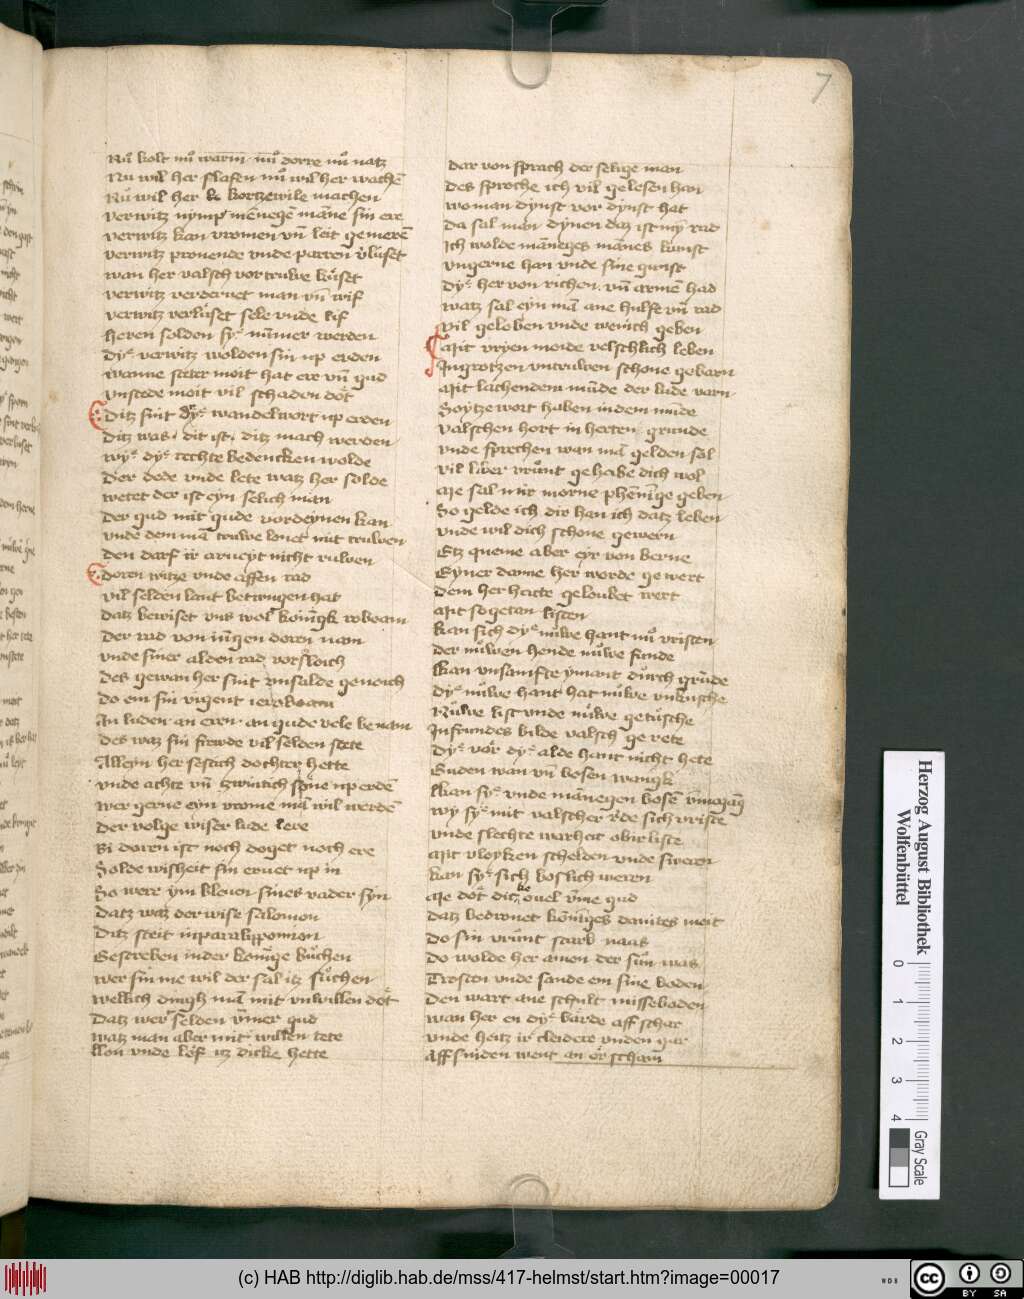 7
Nů kolt nů warm nů dorre nů natz
Nu wil her slafen nů wil her wachē
Nů wil her kortzewile machen
verwitz nymp mēnegē māne sin ere
verwitz kan vromen vn̄ leit gemerē
verwitz provende vnde parren vluset
wan her valsch vor truwe kuset
verwitz vorderuet man vn̄ wif
verwitz verluset sele vnde lif
heren solden sy nūmer werden
Dy verwitz wolden sin vp erden
wanne steter moit hat ere vn̄ gud
vnstede moit vil schaden dot
Ditz sint dy wandelwort vp erden
Ditz was dit ist ditz mach werden
wy dy rechte bedencken wolde
Der dede vnde lete watz her solde
wetet der ist eyn selich man
Der gud mit gude vordeynen kan
vnde dem mā truwe lonet mit truwen
Den darf ir arueyt nicht ruwen
Doren witze vnde affen rad
vil selden lant betwungen hat
Datz bewiset vns wol konīgk roboam
Der rad von iūgen doren nam
vnde siner alden rad vorsloich
Des gewan her sint vnselde genoich
Do em sin vigent ieroboam
In luden an eren an gude vele benam
Des waz sin frewde vil selden stete
Alleyn her sestich dochter hette
vnde achte vn̄ zwintich sone vp erdē
wer gerne eyn vrome mā wil werdē
Der volge wiser lude lere
Bi doren ist noch doget noch ere
Solde wisheit sin eruet vp in
So were ym bleuen sines vader syn
Datz watz der wise salomon
Ditz steit in paralippomion
Gescreben in der konīge buchen
wer sin me wil der sal itz suchen
wellich dingh mā mit vnwillen dot
Datz wert selden vmer gud
watz man aber mit willen tete
Lon vnde lof itz dicke hette
Dar von sprach der selige man
Des sproche ich vil gelesen han
wo man dynst vor dynst hat
Da sal man dynen daz ist my rad
Ich wolde māneges mānes kunst
vngerne han vnde sine gunst
Dy her von richen vn̄ armē had
watz sal eyn mā ane hulfe vn̄ rad
vil geloben vnde wenich geben
Mit vryen moide velschlich leben
In grotzen vntruwen schone gebarn
Mit lachendem mūde der lude varn
Soytze wort haben in dem mūde
valschen hort in herten grunde
vnde sprechen wan mā gelden sal
vil liber vrunt gehabe dich wol
Me sal mir morne phēnīge geben
So gelde ich dir han ich datz leben
vnde wil dich schone gewern
Etz queme aber eyr von berne
Eyner danne her worde gewert
Dem her hatte geloubet wert
Mit sogetan listen
kan sich dy nuwe hant nu vristen
Der nuwen hende nuwe funde
kan vnsanfte ymant durch grūde
Dy nuwe hant hat nuwe vnkusche
Nuwe list vnde nuwe getusche
In frundes bilde valsch gerete
Dy vor dy alde hant nicht hete
Guden wan vn̄ bosen wangk
kan sy vnde mānegen bosē
wy sy mit valscher rede sich vriste
vnde slechte warheit obir liste
Mit vloyken schelden vnde sweren
kan sy sich boslich weren
Me dot dicke ouel vme gud
Datz bedrouet konīges dauites meit
Do sin vrunt starb naas
Do wolde her amon der sun was
Trosten vnde sande em sine boden
Den wart ane schult misseboden
wan her en dy barde aff schar
vnde heitz ir cleidere vnden gar
Aff sniden went an er scham
Herzog August Bibliothek
Wolfenbüttel
0 1 2 3 4
Gray Scale
(c) HAB http://diglib.hab.de/mss/417-helmst/start.htm?image=00017
WDB
CC BY SA